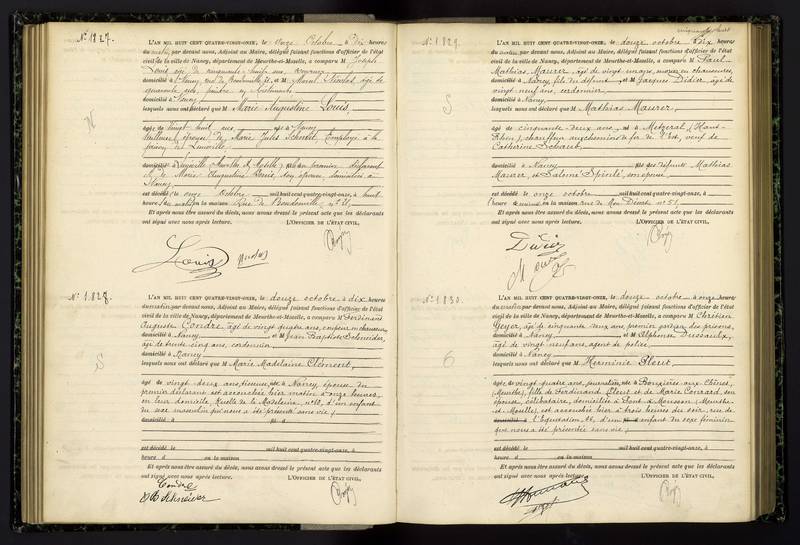 N° 1827.
L'AN MIL HUIT CENT QUATRE-VINGT-ONZE, le onze Octobre à Dix heures
du matin, par devant nous, Adjoint au Maire, délégué faisant fonctions d'officier de l'état
civil de la ville de Nancy, département de Meurthe-et-Moselle, a comparu M Joseph
Louis âgé de cinquante huit ans
domicilié à Nancy, et M Nicolas, âgé de
quarante
domicilié à Nancy
lesquels nous ont déclaré que M Marie Augustine Louis,
âgée de vingt huit ans, née à Nancy
épouse de Marie Jules Employé à la
domiciliée
Nancy
est décédée le onze Octobre mil huit cent quatre-vingt-onze, à huit
heures du matin en la maison Rue de Boudonville n° 21,
Et après nous être assuré du décès, nous avons dressé le présent acte que les déclarants
ont signé avec nous après lecture. L'OFFICIER DE L'ÉTAT CIVIL,
Louis
N° 1.828.
L'AN MIL HUIT CENT QUATRE-VINGT-ONZE, le douze octobre à dix heures
du matin, par devant nous, Adjoint au Maire, délégué faisant fonctions d'officier de l'état
civil de la ville de Nancy, département de Meurthe-et-Moselle, a comparu M Ferdinand
Auguste Condré, âgé de vingt quatre ans, coupeur en chaussures
domicilié à Nancy, et M Jean Baptiste Schneider,
âgé de trente cinq ans, cordonnier
domicilié à Nancy
lesquels nous ont déclaré que M Marie Madelaine Clément,
âgée de vingt deux ans, née à Nancy, épouse du
premier déclarant est accouchée hier matin à onze heures,
en leur domicile, Ruelle de la Madeleine, n° 10, d'un enfant
du sexe masculin qui nous a été présenté sans vie,
domicilié à
est décédé le mil huit cent quatre-vingt-onze, à
heure d en la maison
Et après nous être assuré du décès, nous avons dressé le présent acte que les déclarants
ont signé avec nous après lecture. L'OFFICIER DE L'ÉTAT CIVIL,
Condré
Schneider
N° 1829.
L'AN MIL HUIT CENT QUATRE-VINGT-ONZE, le douze octobre à dix heures
du matin, par devant nous, Adjoint au Maire, délégué faisant fonctions d'officier de l'état
civil de la ville de Nancy, département de Meurthe-et-Moselle, a comparu M Paul
Mathias Maurer, âgé de vingt ans,
domicilié à Nancy, fils du défunt et M Jacques Didier, âgé de
vingt neuf ans, cordonnier
domicilié à Nancy
lesquels nous ont déclaré que M Mathias Maurer,
âgé de cinquante deux ans, né à Metzeral (Haut-
Rhin), chauffeur aux chemins de fer de l'Est, veuf de
Catherine Schaub
domicilié à Nancy fils des défunts Mathias
Maurer, et Salomé Spinlé, son épouse
est décédé le onze octobre mil huit cent quatre-vingt-onze, à
heure en la maison rue de n° 51,
Et après nous être assuré du décès, nous avons dressé le présent acte que les déclarants
ont signé avec nous après lecture. L'OFFICIER DE L'ÉTAT CIVIL,
Didier
N° 1830.
L'AN MIL HUIT CENT QUATRE-VINGT-ONZE, le douze octobre à onze heures
du matin, par devant nous, Adjoint au Maire, délégué faisant fonctions d'officier de l'état
civil de la ville de Nancy, département de Meurthe-et-Moselle, a comparu M Chrétien
Geyer, âgé de cinquante deux ans, premier gardien des prisons,
domicilié à Nancy et M Alphonse Dussaulx,
âgé de vingt neuf ans, agent de police
domicilié à Nancy
lesquels nous ont déclaré que M Herminie Fleur,
âgée de vingt quatre ans, journalière, née à Bouxières aux Chênes,
(Meurthe), fille de Ferdinand Fleur et de Marie Conrard, son
épouse, célibataire, domiciliée à Pont à Mousson, (Meurthe
et Moselle), est accouchée hier à trois heures du soir, rue de
l'Equitation, d'un enfant du sexe féminin
qui nous a été présentée sans vie,
est décédé le mil huit cent quatre-vingt-onze, à
heure d en la maison
Et après nous être assuré du décès, nous avons dressé le présent acte que les déclarants
ont signé avec nous après lecture. L'OFFICIER DE L'ÉTAT CIVIL,